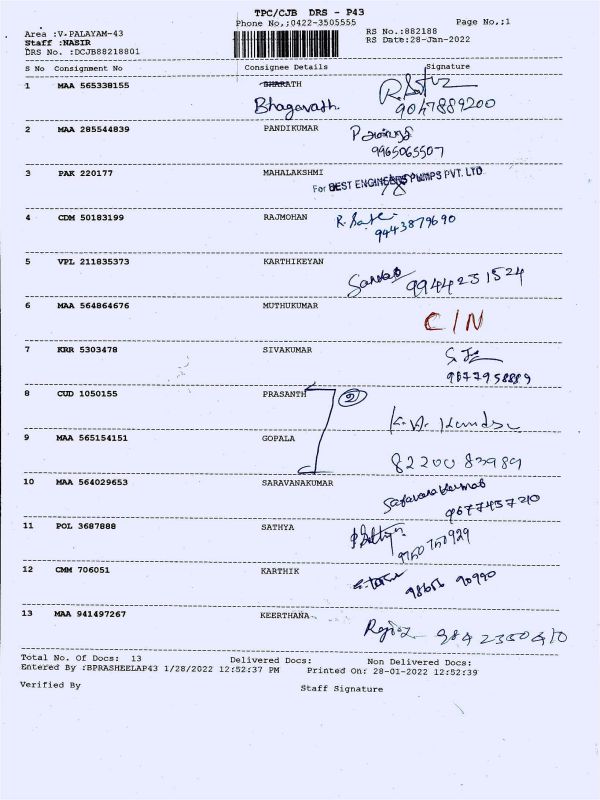 TPC/CJB DRS - P43
Area :V.PALAYAM-43 Phone No,;0422-3505555 Page No,;1
Staff :NASIR RS No.:882188
DRS No. :DCJB88218801 RS Date:28-Jan-2022
S No Consignment No Consignee Details Signature
1 MAA 565338155 BHARATH
Bhagavath. 9047889200
2 MAA 285544839 PANDIKUMAR
9965065507
3 PAK 220177 MAHALAKSHMI
For BEST ENGINEERS PUMPS PVT. LTD
4 CDM 50183199 RAJMOHAN
9443879690
5 VPL 211835373 KARTHIKEYAN
9944231524
6 MAA 564864676 MUTHUKUMAR
C/N
7 KRR 5303478 SIVAKUMAR
9677958889
8 CUD 1050155 PRASANTH 2
9 MAA 565154151 GOPALA
8220083989
10 MAA 564029653 SARAVANAKUMAR
Saravanakumar
9677457210
11 POL 3687888 SATHYA
9750750929
12 CMM 706051 KARTHIK
98656 90990
13 MAA 941497267 KEERTHANA
9842350410
Total No. Of Docs: 13 Delivered Docs: Non Delivered Docs:
Entered By :BPRASHEELAP43 1/28/2022 12:52:37 PM Printed On: 28-01-2022 12:52:39
Verified By Staff Signature